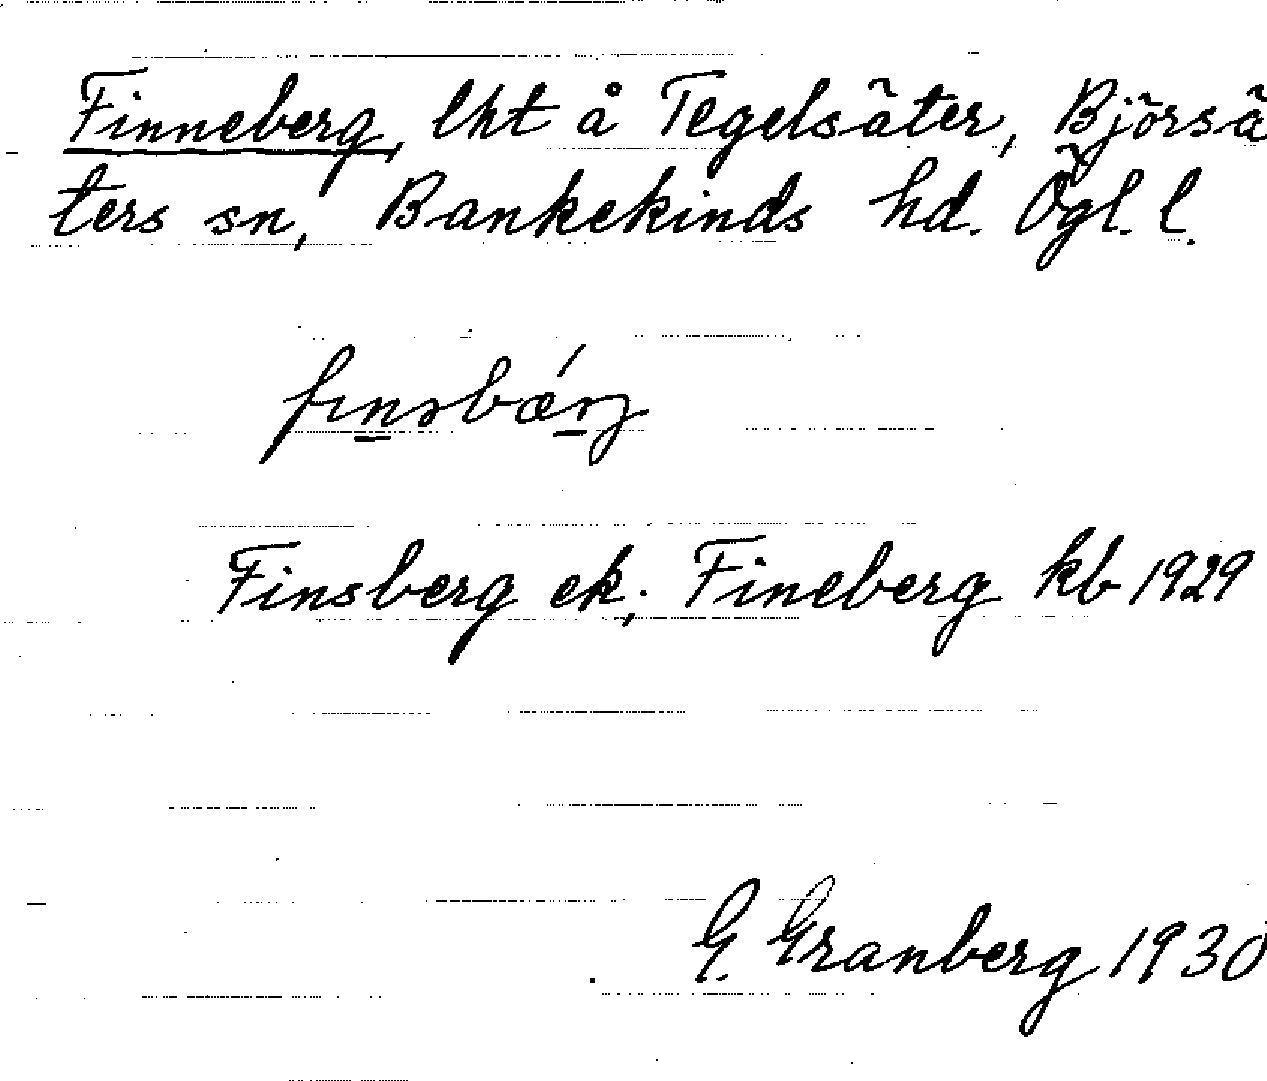 Finneberg, lht å Tegelsäter, Björsä
ters sn, Bankekinds hd. Ögl. l.
fın̲əbǽr̲ȷ
Finsberg ek; Fineberg kb 1929
G. Granberg 1930